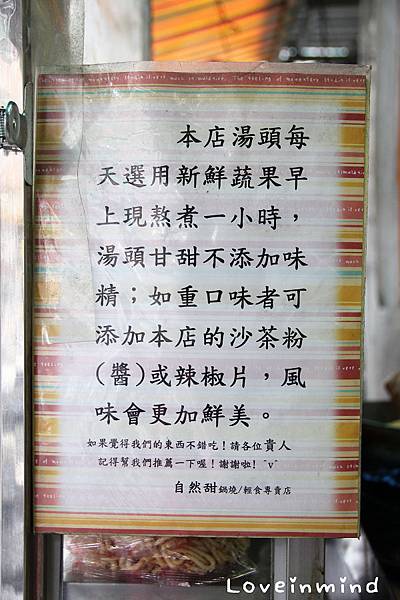 本店湯頭每
天選用新鮮蔬果早
上現熬煮一小時，
湯頭甘甜不添加味
精；如重口味者可
添加本店的沙茶粉
(醬)或辣椒片，風
味會更加鮮美。
如果覺得我們的東西不錯吃！請各位貴人
記得幫我們推薦一下喔！謝謝啦！^v^
自然甜鍋燒/輕食專賣店
Loveinmind